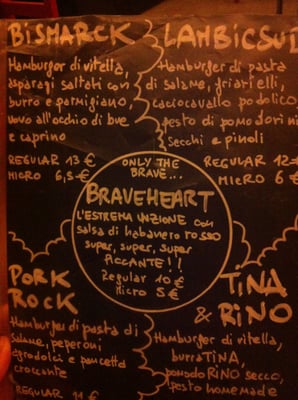 BISMARCK
Hamburger di vitella,
asparagi saltati con
burro e parmigiano,
uovo all'occhio di bue
e caprino
REGULAR 13 €
MICRO 6,5 €
LAMBICSUD
Hamburger di pasta
di salame, friarielli,
caciocavallo podolico
pesto di pomodorini
secchi e pinoli
REGULAR 12
MICRO 6 €
ONLY THE
BRAVE...
BRAVEHEART
L'ESTREMA UNZIONE con
salsa di habanero rosso
super, super, super
PICCANTE!!
Regular 10 €
Micro 5 €
PORK
ROCK
Hamburger di pasta di
salame, peperoni
agrodolci e pancetta
croccante
REGULAR 11 €
TINA
& RINO
Hamburger di vitella,
burraTINA,
pomodoRINO secco,
pesto homemade